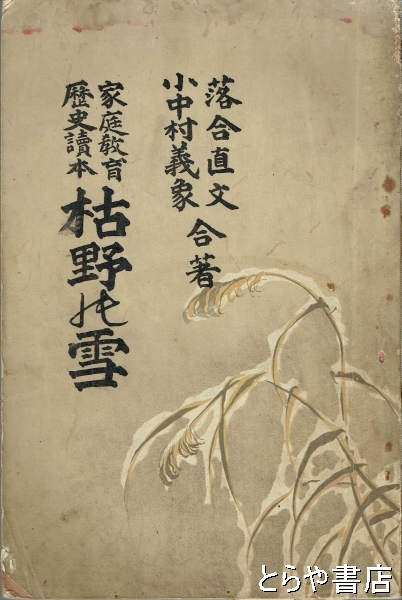 落合直文
小中村義象
合著
家庭教育
歷史讀本
枯野の雪
とらや書店